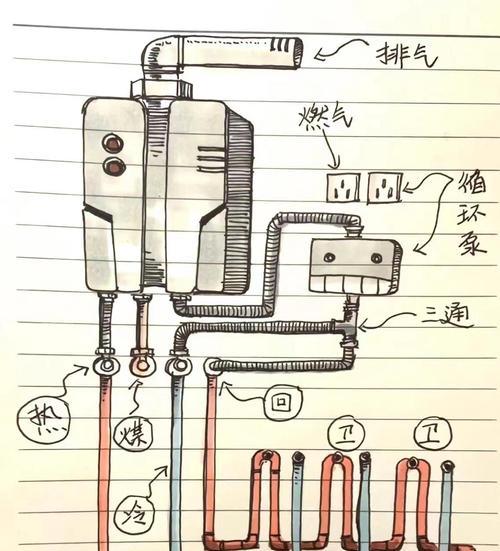 排气
燃气
循环泵
三通
热
煤
回
卫
卫
冷